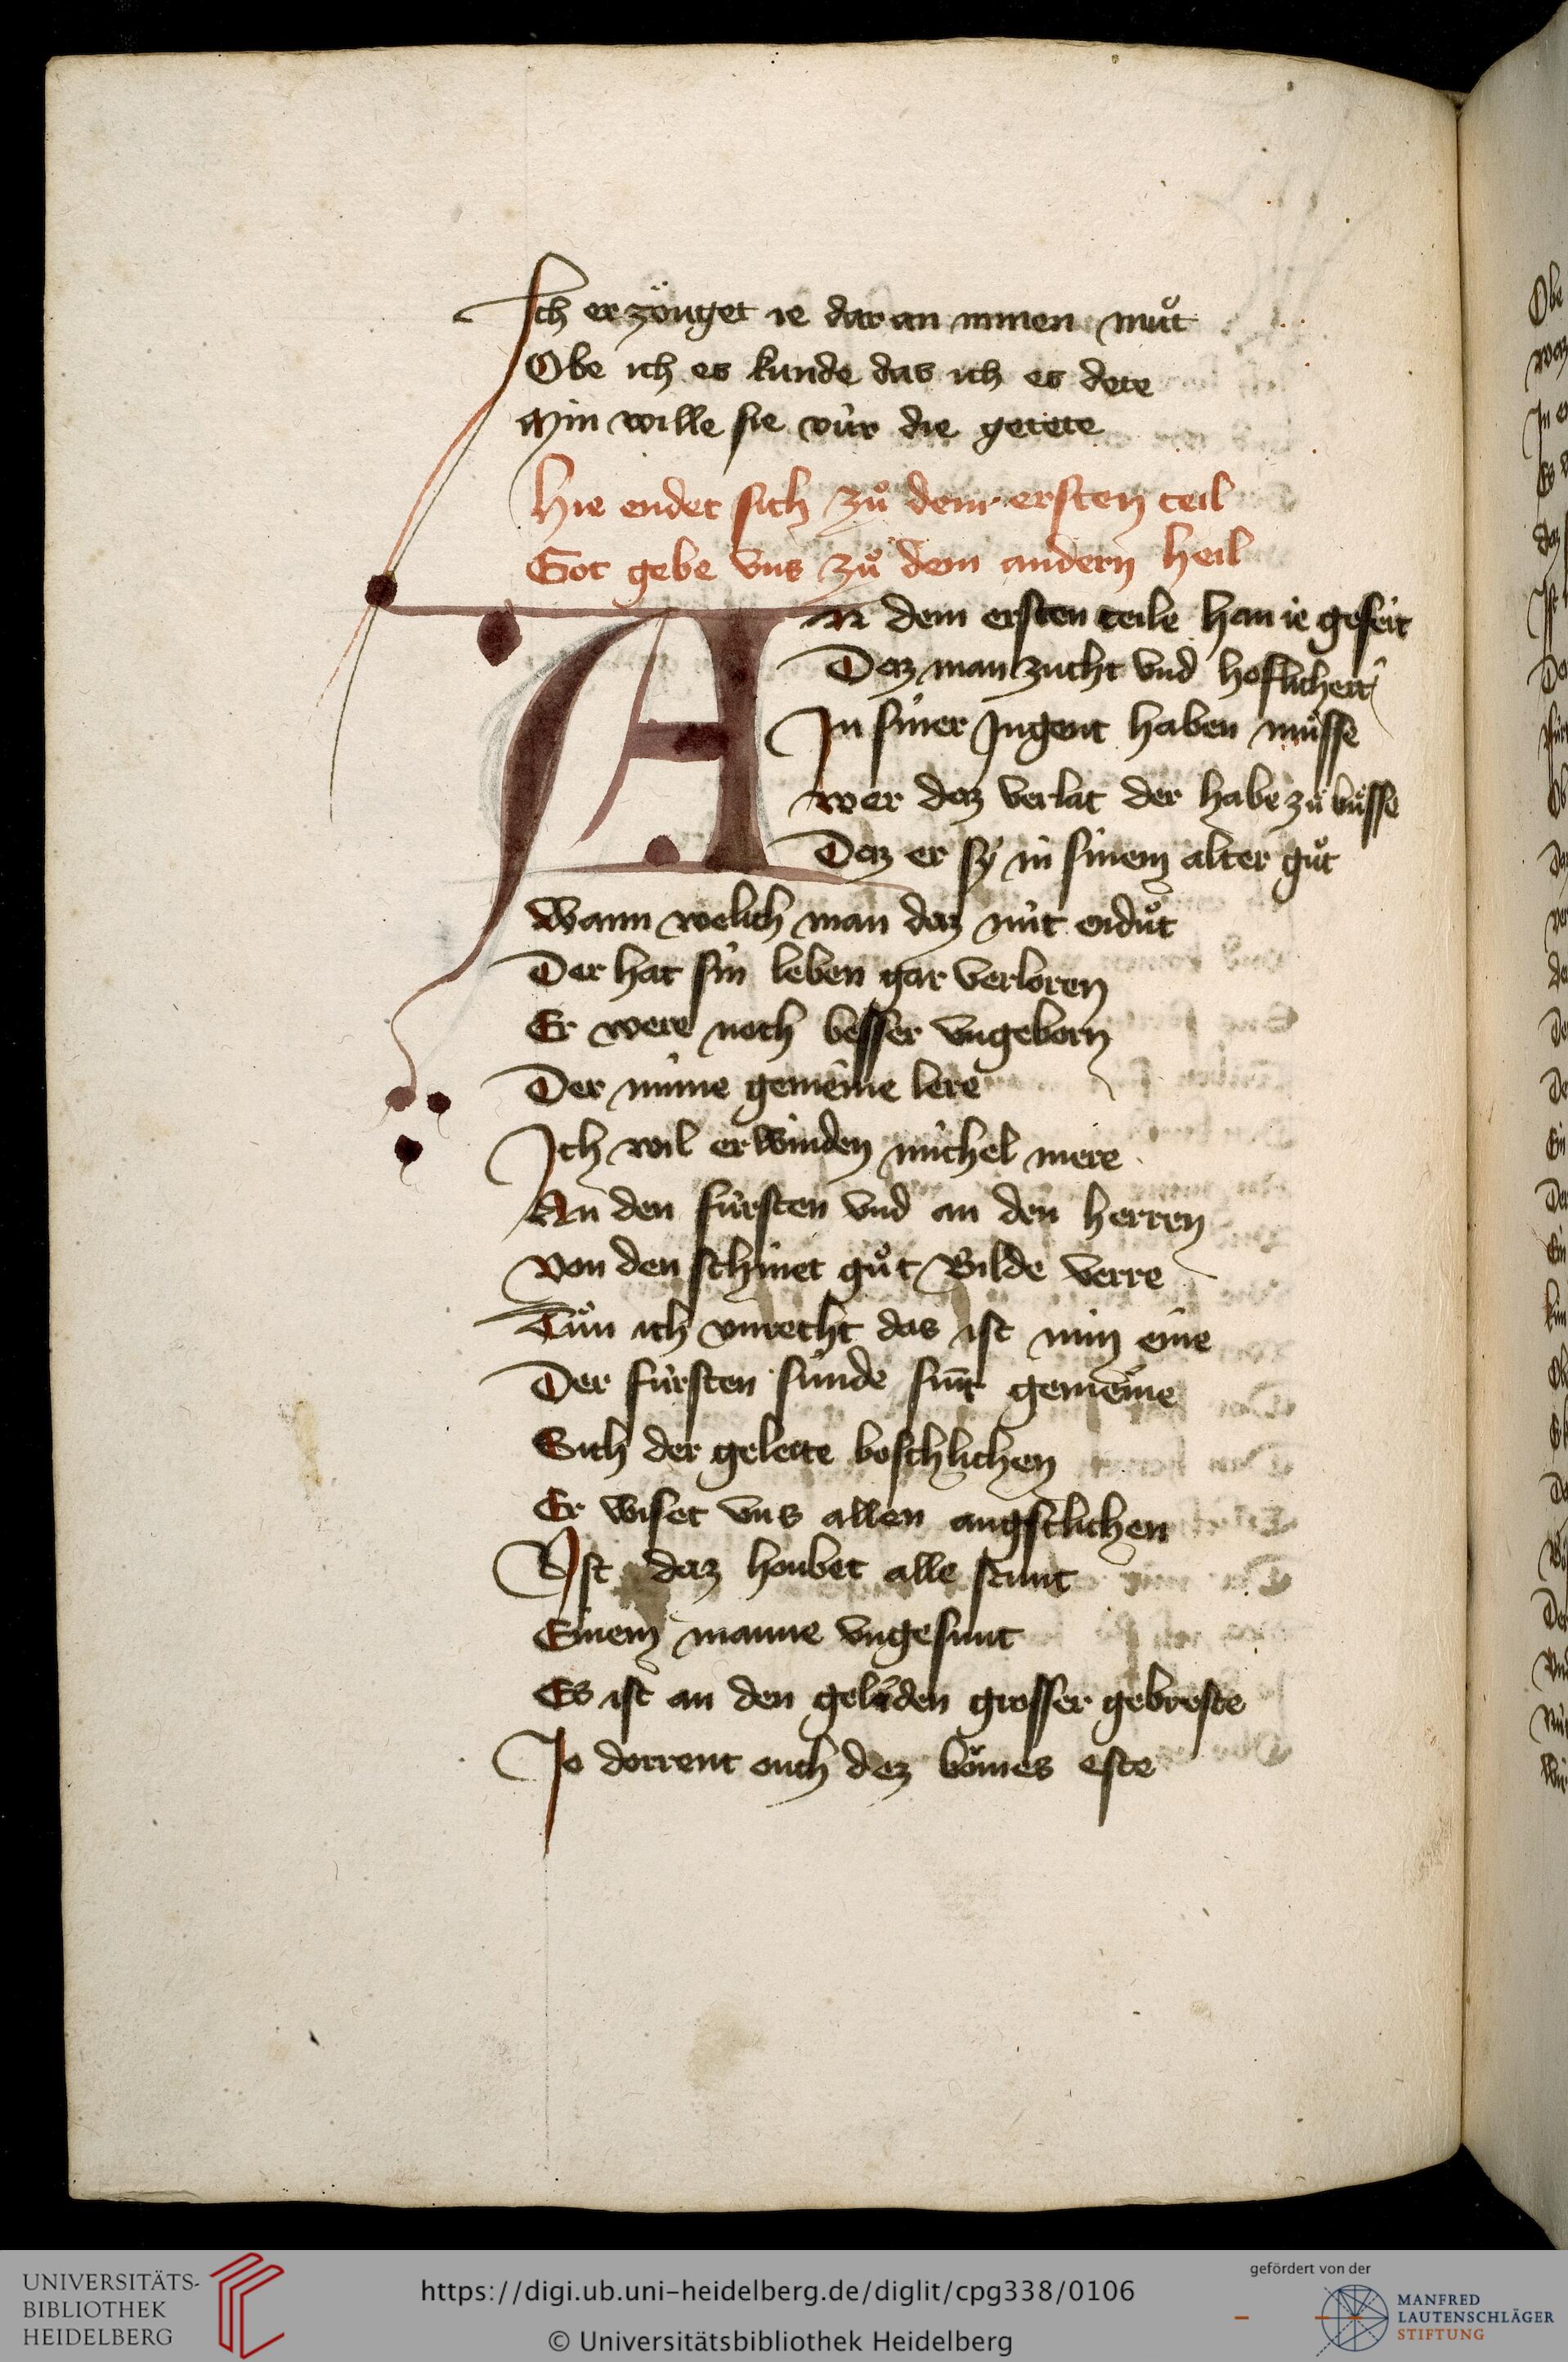 Ich erzöuget ie dar an minen muͦt
Obe ich es kunde das ich es dete
Min wille sie vúr die getete
Hie endet sich zuͦ dem ersten teil
Got gebe vns zuͦ dem andern heil
AN dem ersten teile han ie geseit
Daz man zucht vnd hoflicheit
In siner Jugent haben muͤsse
wer daz verlat der habe zuͦ buͤsse
Daz er sy in sinem alter guͦt
Wann welich man daz nit enduͦt
Der hat sin leben gar verloren
Er were noch besser vngeborn
Der mine gemeine lere
Ich wil erwinden michel mere
An den fúrsten vnd an den herren
Von den schinet guͦt Bilde verre
Tuͦn ich vnrecht das ist min eine
Der fúrsten súnde sint gemeine
Sich der geleite boschlichen
Er wiset vns allen angstlichen
Ist daz houbet alle stunt
Einem manne vngesunt
Es ist an den geliden grosser gebreste
Jo dorrent ouch dez boͮmes este
UNIVERSITÄTS-
BIBLIOTHEK
HEIDELBERG
https://digi.ub.uni-heidelberg.de/diglit/cpg338/0106
© Universitätsbibliothek Heidelberg
gefördert von der
MANFRED
LAUTENSCHLÄGER
STIFTUNG